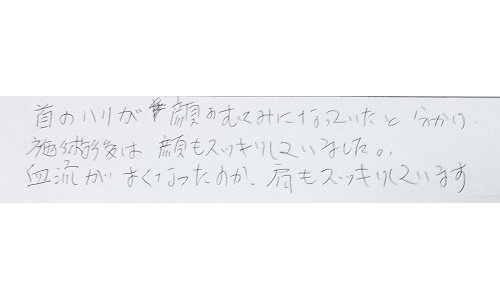 首のハリが顔のむくみになっていたと分かり、
施術後は 顔もスッキリしていました。
血流がよくなったのか、肩もスッキリしています